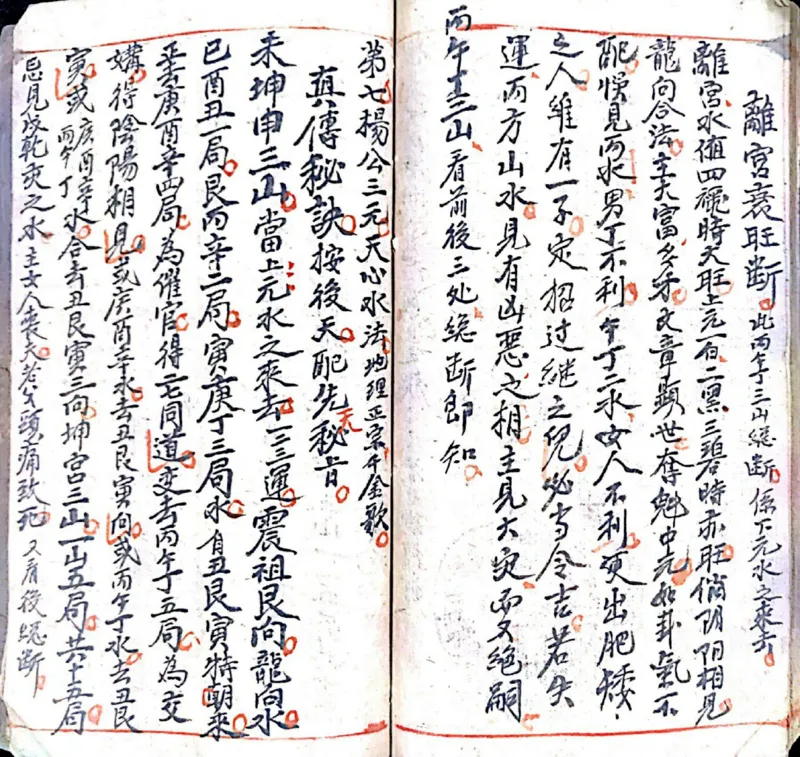 離宮衰旺斷 此丙午丁三山總斷係下元水之來去
離宮水值四祿時大旺上元一白二黑三碧時亦旺俏阴阳相見
龍向合法主大富多才文章顯世奪魁中元如卦氣不
配惧見丙水男丁不利午丁二水女人不利更出肥矮
之人雖有一子定招过継之兒必当令吉若失
運丙方山水見有凶惡之相主見大灾而又絕嗣
丙午丁三山看前後三处総断即知
第七楊公三元天心水法地理正宗千金歌
真傳秘訣按後天配先天秘旨
未坤申三山當上元水之來去一二三運震祖艮向龍向水
巳酉丑一局艮丙辛二局寅庚丁三局水自丑艮寅特朝來
正去庚酉辛四局為催官得一七同道变去丙午丁五局為交
媾待陰陽相見或庚酉辛水去丑艮寅向或丙午丁水去丑艮
寅或庚酉辛丙午丁水合去丑艮寅三向坤宮三山一山五局共十五局
忌見戌乾亥之水主女人丧夫老父頭痛致死又看後総断